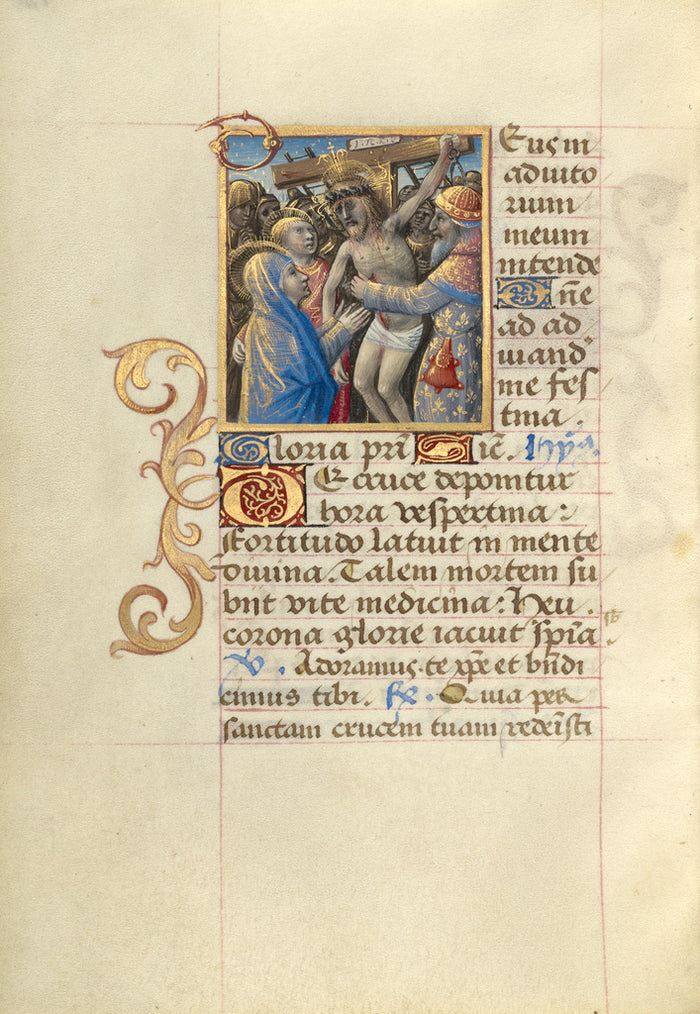 I.N.R.I
Deus in
adiuto
rium
meum
intende
Dn̄e
ad ad
iuuandꝰ
me fes
tina.
Gloria pr̄i Sic̄. hȳm.
De cruce deponitur
hora vespertina:
Fortitudo latuit in mente
diuina. Talem mortem su
biit vite medicina: Heu
corona glorie iacuit sp̄ia.
v. Adoramus te xp̄e et bn̄di
cimus tibi. rx. Quia per
sanctam crucem tuam redemisti